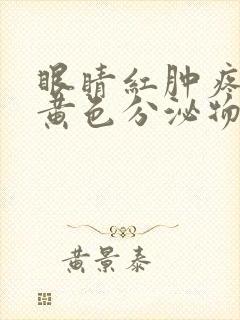 眼睛红肿疼
黄色分泌物
黄景泰